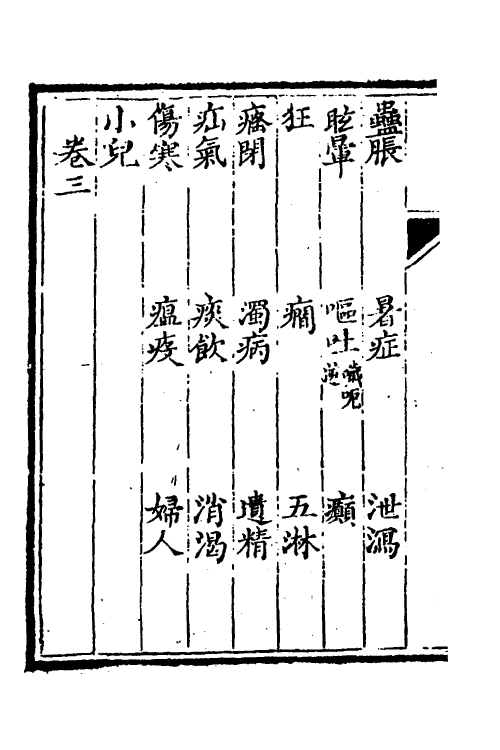 蠱脹　暑症　泄瀉
眩暈　嘔吐噦呃逆　癲
狂　癇　五淋
癃閉　濁病　遺精
疝氣　痰飲　消渴
傷寒　瘟疫　婦人
小兒
卷三